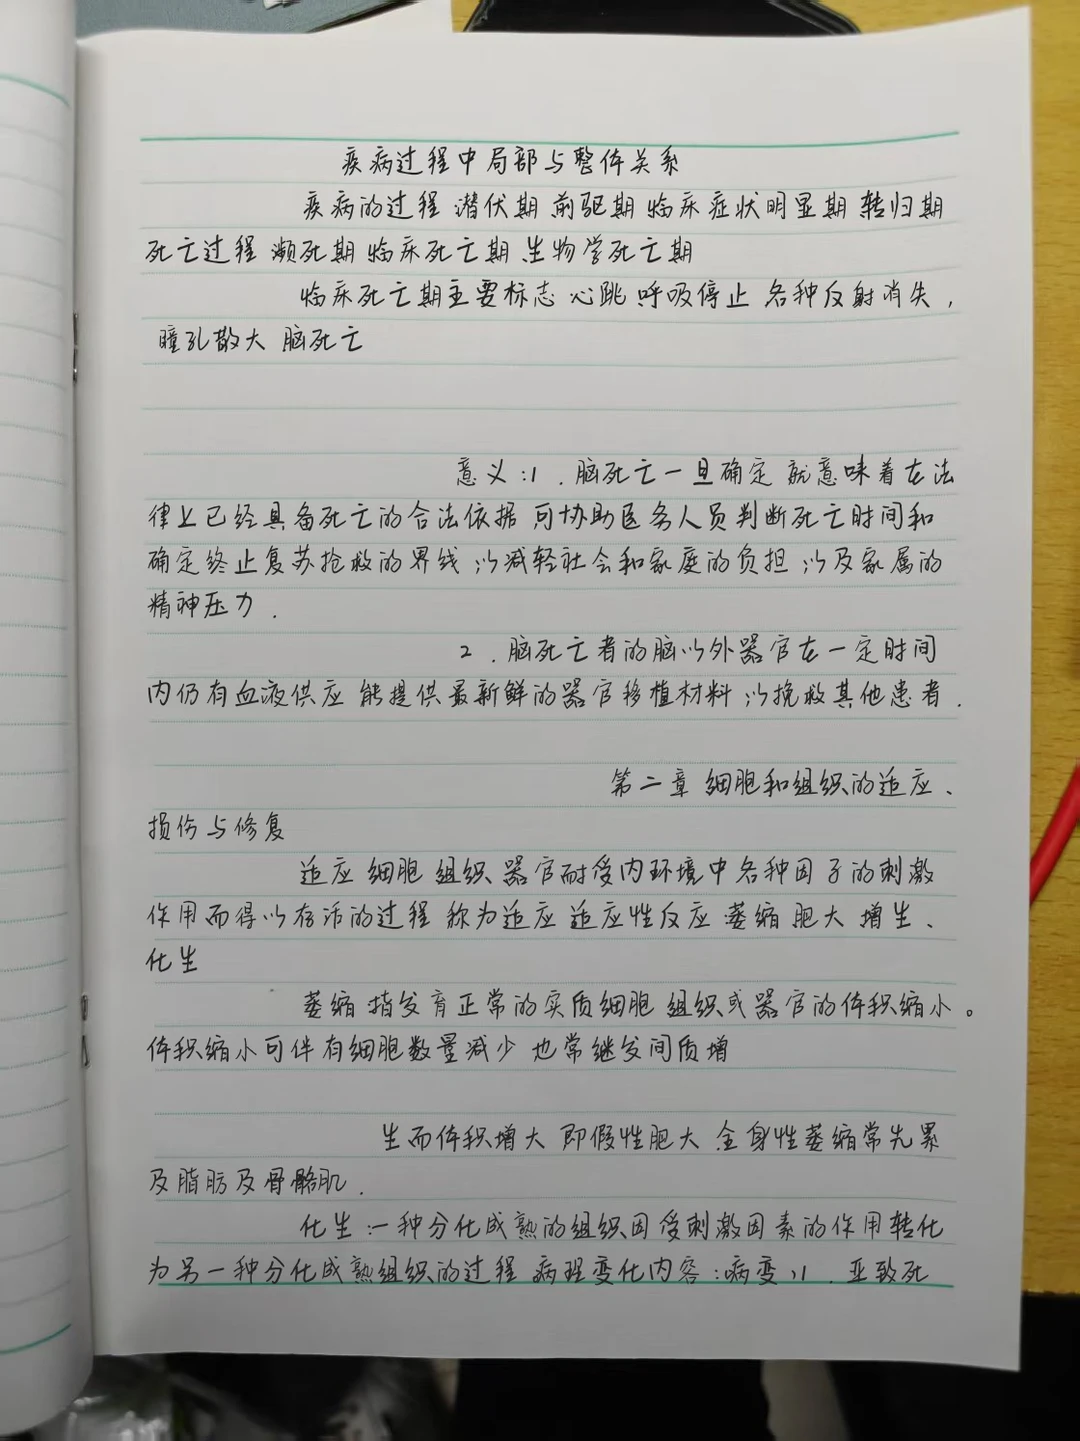 疾病过程中局部与整体关系
疾病的过程 潜伏期 前驱期 临床症状明显期 转归期
死亡过程 濒死期 临床死亡期 生物学死亡期
临床死亡期主要标志 心跳 呼吸停止 各种反射消失,
瞳孔散大 脑死亡
意义:1.脑死亡一旦确定 就意味着在法
律上已经具备死亡的合法依据 可协助医务人员判断死亡时间和
确定终止复苏抢救的界线 以减轻社会和家庭的负担 以及家属的
精神压力.
2.脑死亡者的脑以外器官在一定时间
内仍有血液供应 能提供最新鲜的器官移植材料 以挽救其他患者.
第二章 细胞和组织的适应、
损伤与修复
适应 细胞 组织 器官耐受内环境中各种因子的刺激
作用而得以存活的过程 称为适应 适应性反应 萎缩 肥大 增生、
化生
萎缩 指发育正常的实质细胞 组织或器官的体积缩小。
体积缩小可伴有细胞数量减少 也常继发间质增
生而体积增大 即假性肥大 全身性萎缩常先累
及脂肪及骨骼肌.
化生:一种分化成熟的组织因受刺激因素的作用转化
为另一种分化成熟组织的过程 病理变化内容:病变 )1.亚致死